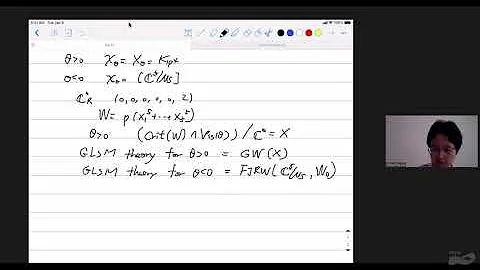 θ>0 𝒳_θ = X_θ = K_{ℙ⁴}
θ<0 𝒳_θ = [ℂ⁵/μ₅]
ℂ*_R (0,0,0,0,0,2)
W = p(x₁⁵+⋯+x₅⁵)
θ>0 (Crit(W) ∩ V_{ss}(θ)) / ℂ* = X
GLSM theory for θ>0 = GW(X)
GLSM theory for θ<0 = FJRW(ℂ⁵/μ₅, W₀)